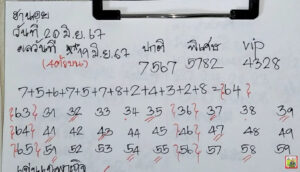 ฮานอย
วันที่ 20 มิ.ย. 67
ผลวันที่ 19 มิ.ย. 67 ปกติ พิเศษ vip
(4ตัวบน) 7567 5782 4328
7+5+6+7+5+7+8+2+4+3+2+8=64
63 31 32 33 34 35 36 37 38 39
64 41 42 43 44 45 46 47 48 49
65 51 52 53 54 55 56 57 58 59